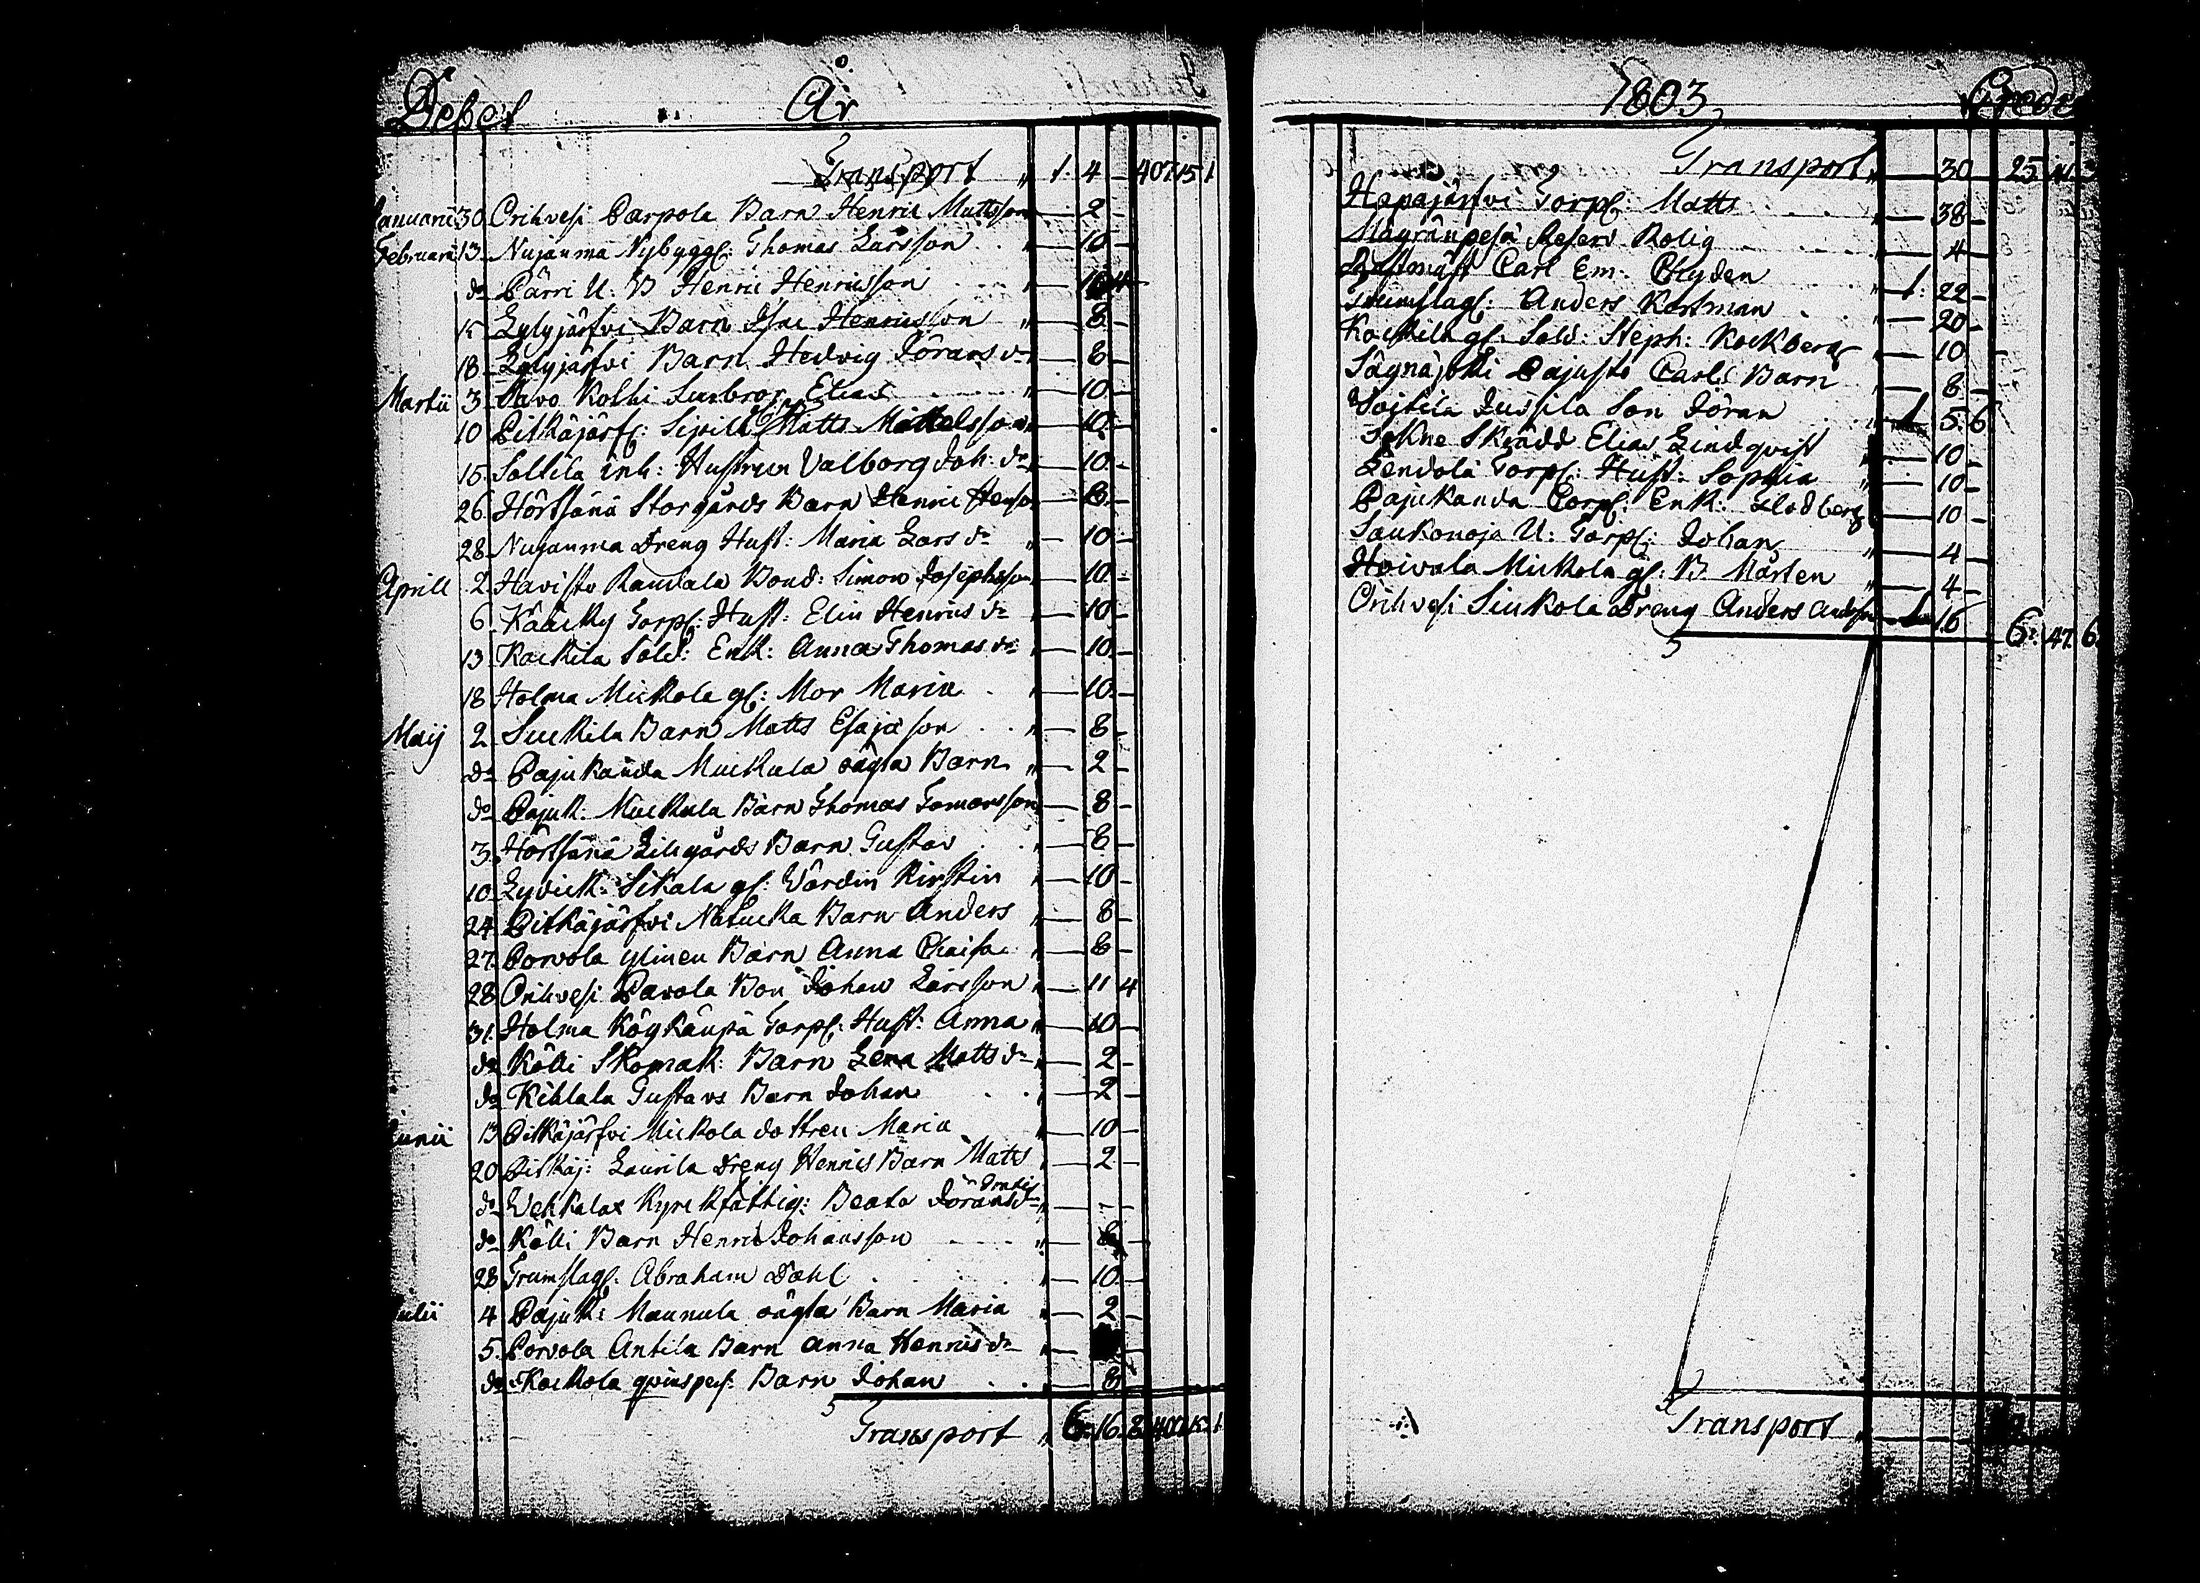 Debet År
Transport " 1. 4 - 407. 15. 1
Januarii 30. Orihvesi Parpola Barn Henric Mattsson - 2 -
Februarii 13. Nujanma Nybyggs: Thomas Larsson . . " - 10 -
do Pärri U: B Henric Henricsson
15 Lylyjärfvi Barn Isac Henricsson " - 8 -
18. Lylyjärfvi Barn Hedvig Jöransdr - 8 -
Martii 3. Savo Kolhi Elias . . . " - 10 -
10 Pitkäjärf: Sipilä Matts - 10. -
15. Soltila inh: Hustrun Valborg Joh: dr - 10. -
26. Hörtsänä Storgårds Barn Henric - 8. -
28. Nujanma Dreng Hust: Maria Lars dr " - 10. -
Aprill 2. Havisto Randala Bond: Simon Josephsson - 10. -
6. Käärky Torp: Hust: Elin Henrics dr " - 10. -
13. Kockila Sold: Enk: Anna Thomas dr - 10. -
18 Holma Mickola gl: Mor Maria . " - 10. -
Maij 2. Suckila Barn Matts Esajason . . " - 8 -
do Pajukanda Muckula oägta Barn " - 2 -
do Pajuk: Muckula Barn Thomas - 8 -
3. Hörtsänä Lillgårds Barn Gustav . . " - 8 -
10. Lyvick: Sikala gl: Värdin Kirstin " - 10 -
24. Pitkäjärfvi Barn Anders " - 8 -
27. Porvola ylinen Barn Anna " - 8 -
28. Orihvesi Pavola Bon Johan Larsson " - 11 4
31. Holma Torp: Hust: Anna " - 10 -
do Kölli Skomak: Barn Lena Matts dr " - 2 -
do Kihlala Gustavs Barn Johan . . " - 2 -
Junii 13 Pitkäjärfvi Mickola dottren Maria - 10 -
20. Pitkäj: Laurila Dreng Henrics Barn Matts " - 2 -
gratis
do Wehkalax Kyrckfattig: Beata Jörans dr " - - -
do Kölli Barn Henric Johansson " 8 -
28 Trumslag: Abraham Dahl . . . " - 10 -
Julii 4 Pajuk: Maunula oägta Barn Maria " - 2 -
5. Porvola Antila Barn Anna Henrics dr " -
do Kockola qvinspers: Barn Johan . . " - 8
Transport " 6. 16. 8. 407. 15. 1
1803 Credit
Transport " - 30 - 25.
Hapajärfvi Torp: Matts . . . " - 38 -
Reserv Rolig " - 4 -
Carl Em: Chyden " 1. 22 -
Trumslag: Anders Kortman . . " - 20 -
Kockila gl: Sold: Steph: Kockberg " - 10 -
Sägnäjoki Pajusto Carls Barn " - 8 -
Voitila Jussila Son Jöran . . 5. 6
Skrädd Elias Lindqvist " - 10 -
Lendola Torp: Hust: Sophia " - 10 -
Pajukanda Torp: Enk: - 10 -
Saukonoja U: Torp: Johan " - 4 -
Hoivala Mickola gl: B. Mårten " - 4 -
Orihvesi Siukola Dreng Anders 16
6. 47. 6.
Transport "